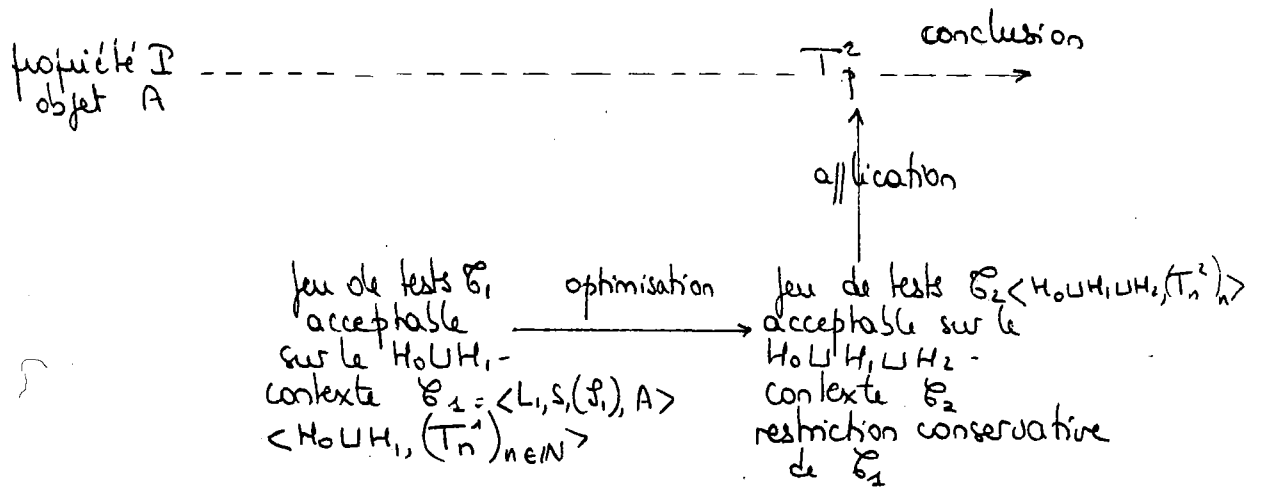 conclusion
propriété I
objet A
T²ₚ
application
jeu de tests 𝒢₁
acceptable
sur le H₀⊔H₁-
contexte 𝒢₁ = <L₁,S₁(𝒮₁),A>
<H₀⊔H₁,(Tₙ¹)ₙ∈ℕ>
optimisation
jeu de tests 𝒢₂<H₀⊔H₁⊔H₂,(Tₙ²)ₙ>
acceptable sur le
H₀⊔H₁⊔H₂-
contexte 𝒢₂
restriction conservative
de 𝒢₁